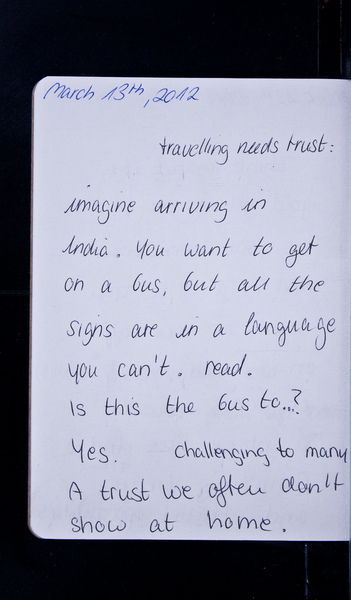 March 13th, 2012
travelling needs trust:
imagine arriving in
India. You want to get
on a bus, but all the
signs are in a language
you can't. read.
Is this the bus to...?
Yes. challenging to many
A trust we often don't
show at home.